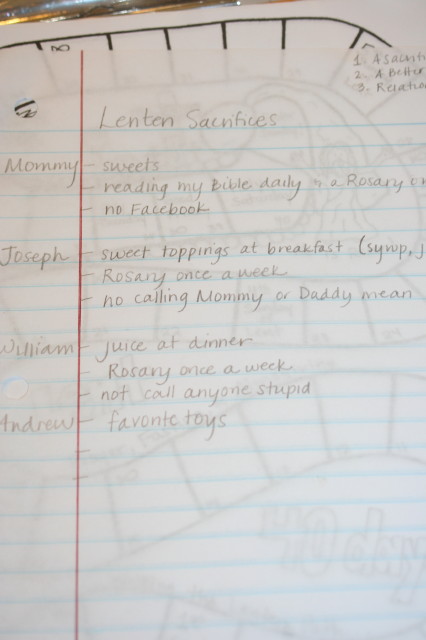 1. A sacrifi
2. A Better
3. Relation
Lenten Sacrifices
Mommy - sweets
- reading my Bible daily + a Rosary on
- no Facebook
Joseph - sweet toppings at breakfast (syrup, j
- Rosary once a week
- no calling Mommy or Daddy mean
William - juice at dinner
- Rosary once a week
- not call anyone stupid
Andrew - favorite toys
-
-